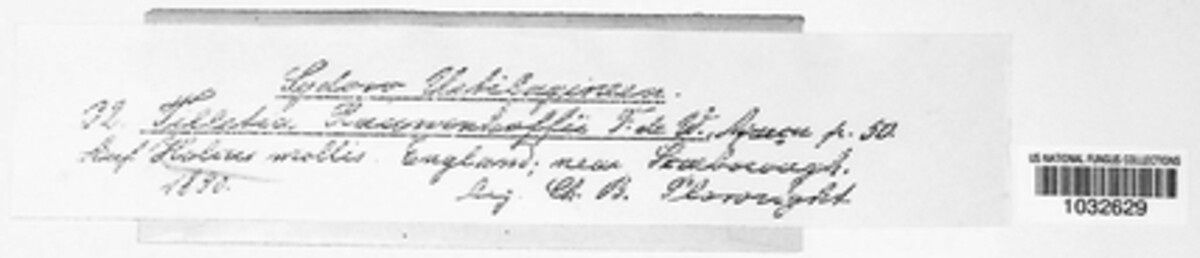 Sydow Ustilagineen.
32. Tilletia Rauwenhoffii F. de W. p. 50.
Auf Holcus mollis. England; near Scarborough.
1890. leg. Ch. B. Plowright
US NATIONAL FUNGUS COLLECTIONS
1032629